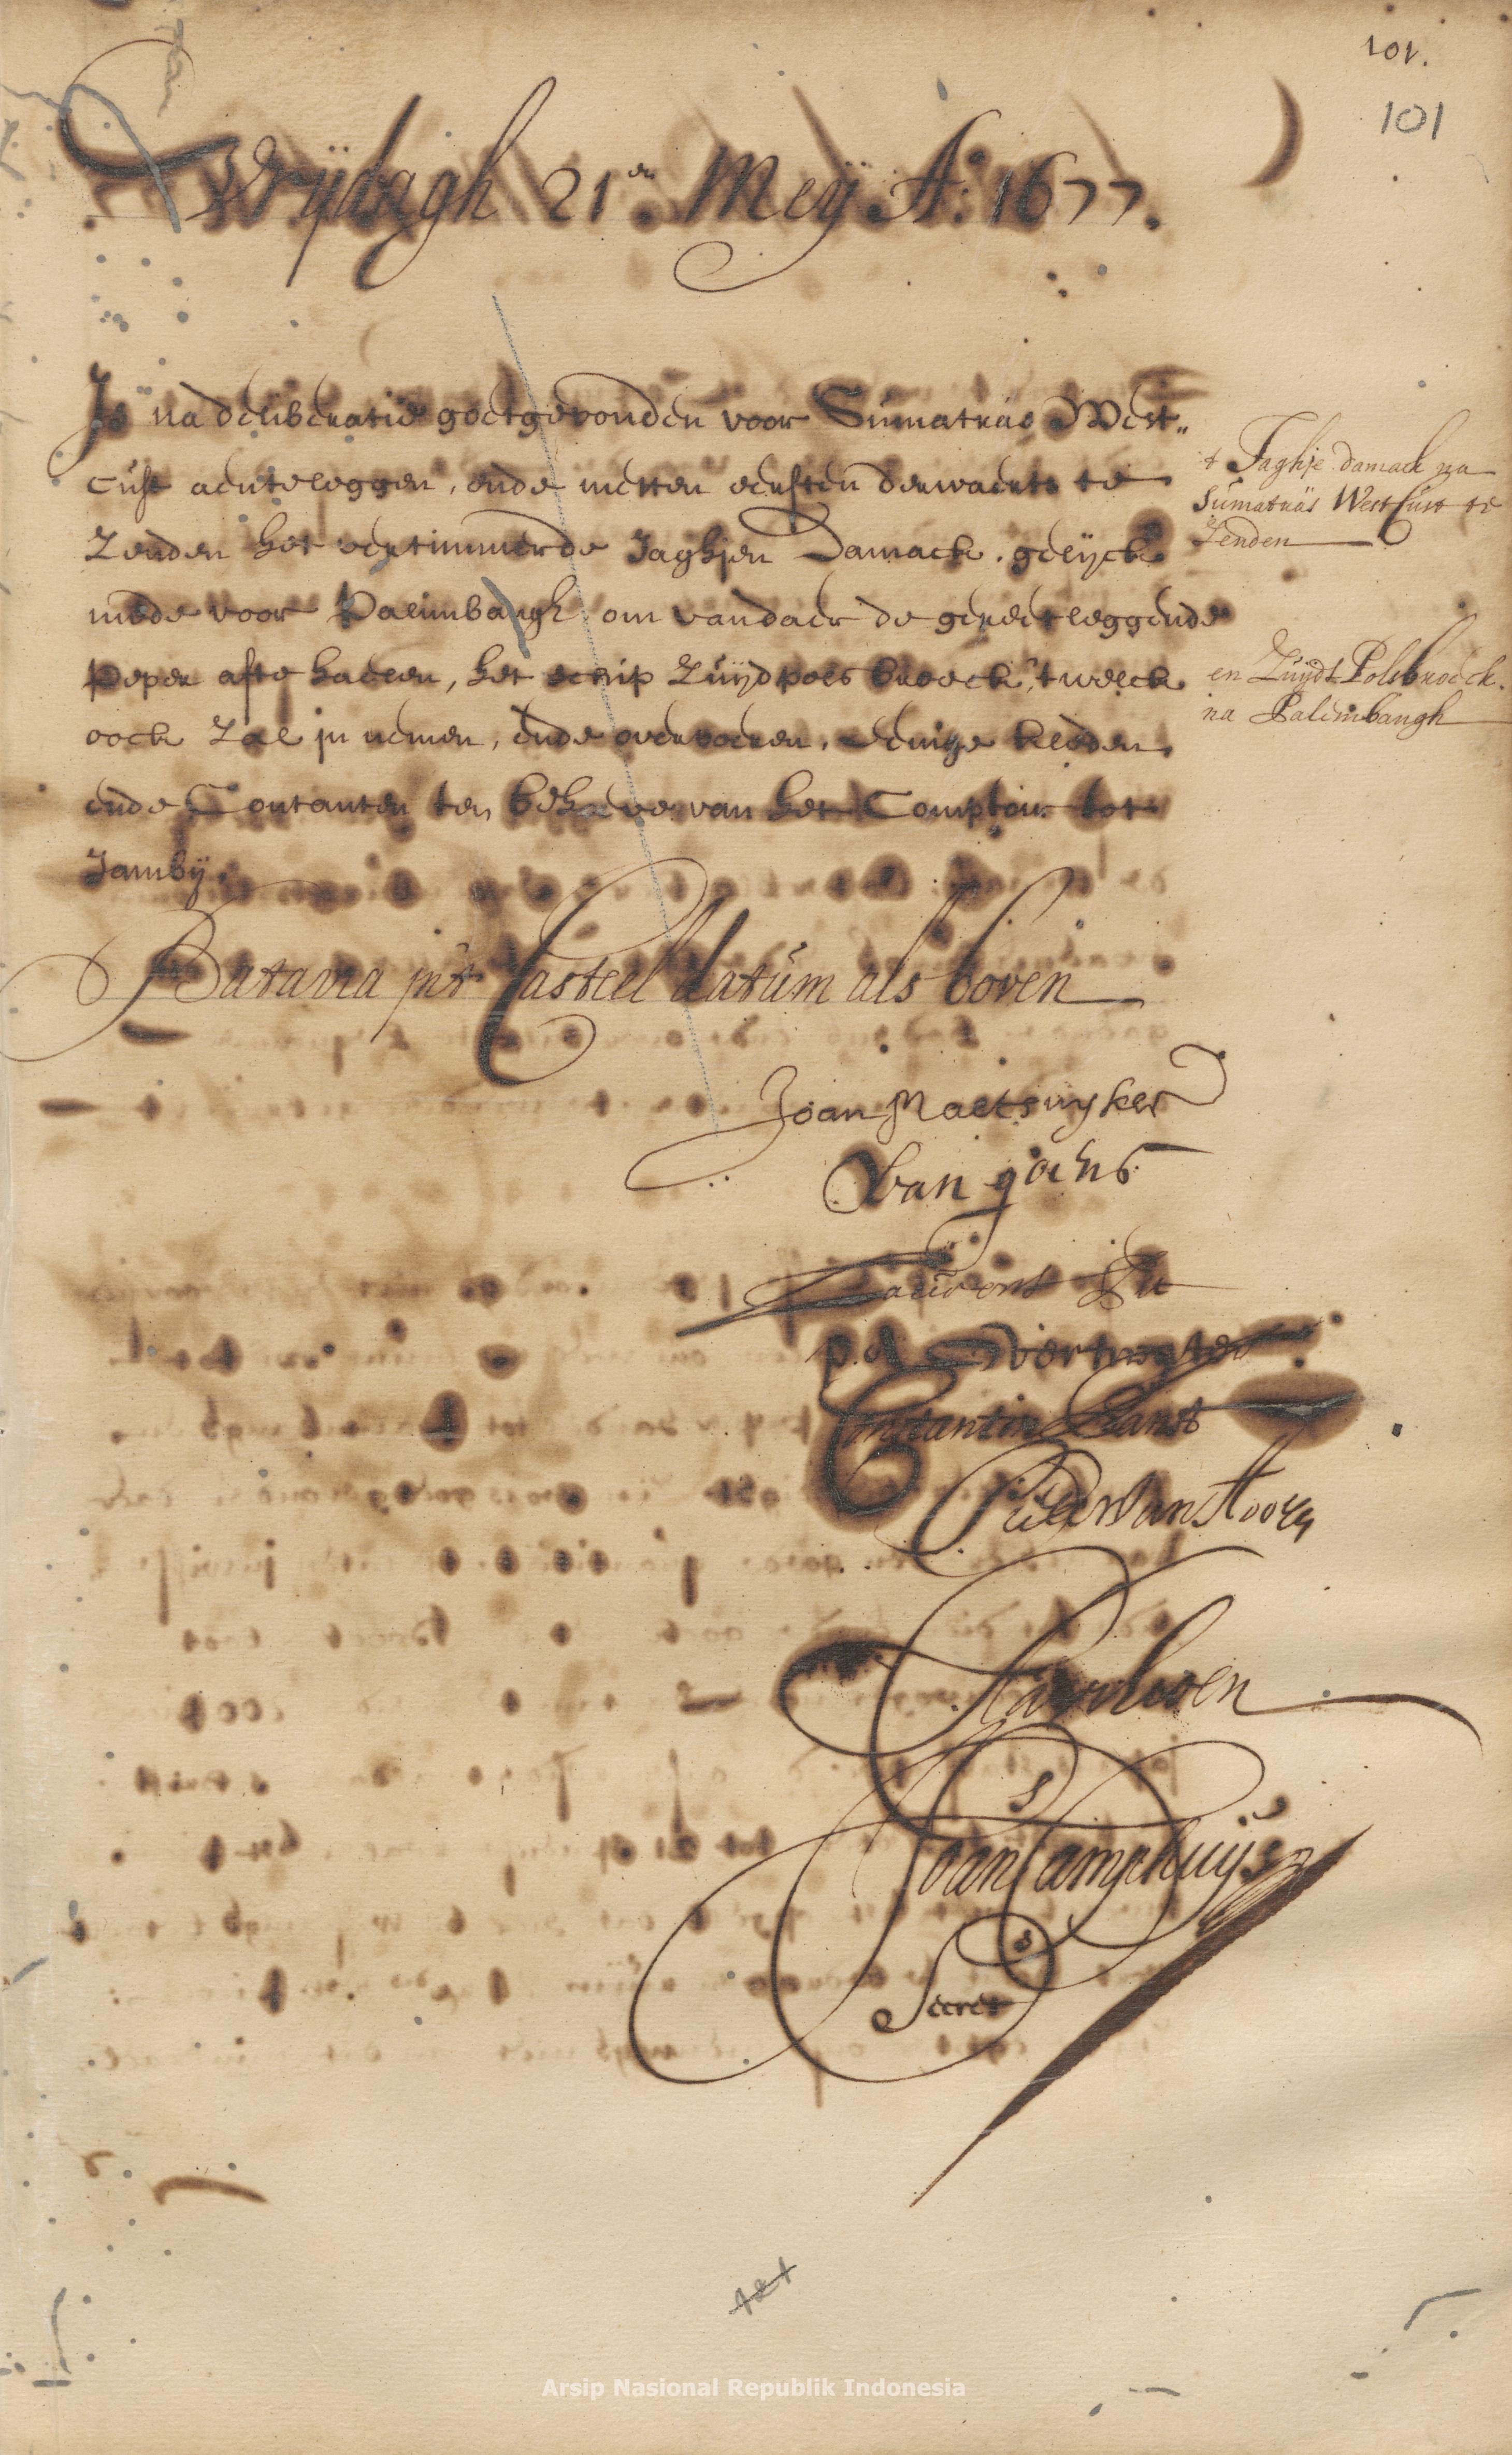 101.
101
Vrijdagh 21en Meij Ao: 1677.
Is na deliberatie goetgevonden voor Sumatras West„
cust aenteleggen, ende metten eersten derwaerts te
zenden het vertimmerde Jaghjen Damack, gelijck
mede voor Palimbangh om van daer de gereet leggende
peper afte haelen, het schip Zuijdpolsbroeck, 'twelck
oock zal in nemen, ende overvoeren, eenige kleden
ende Contanten ten behoeve van het Comptoir tot
Jambij.
Batavia in't Casteel datum als boven
t Jaghje damack na
Sumatras Westcust te
Zenden
en Zuijdt Polsbroeck
na Palimbangh
Joan Maetsuyker
Van goens
Laurens Pit
Constantin Ranst
Pieter Van Hoorn
Joan Camphuijs
Secrets
Arsip Nasional Republik Indonesia